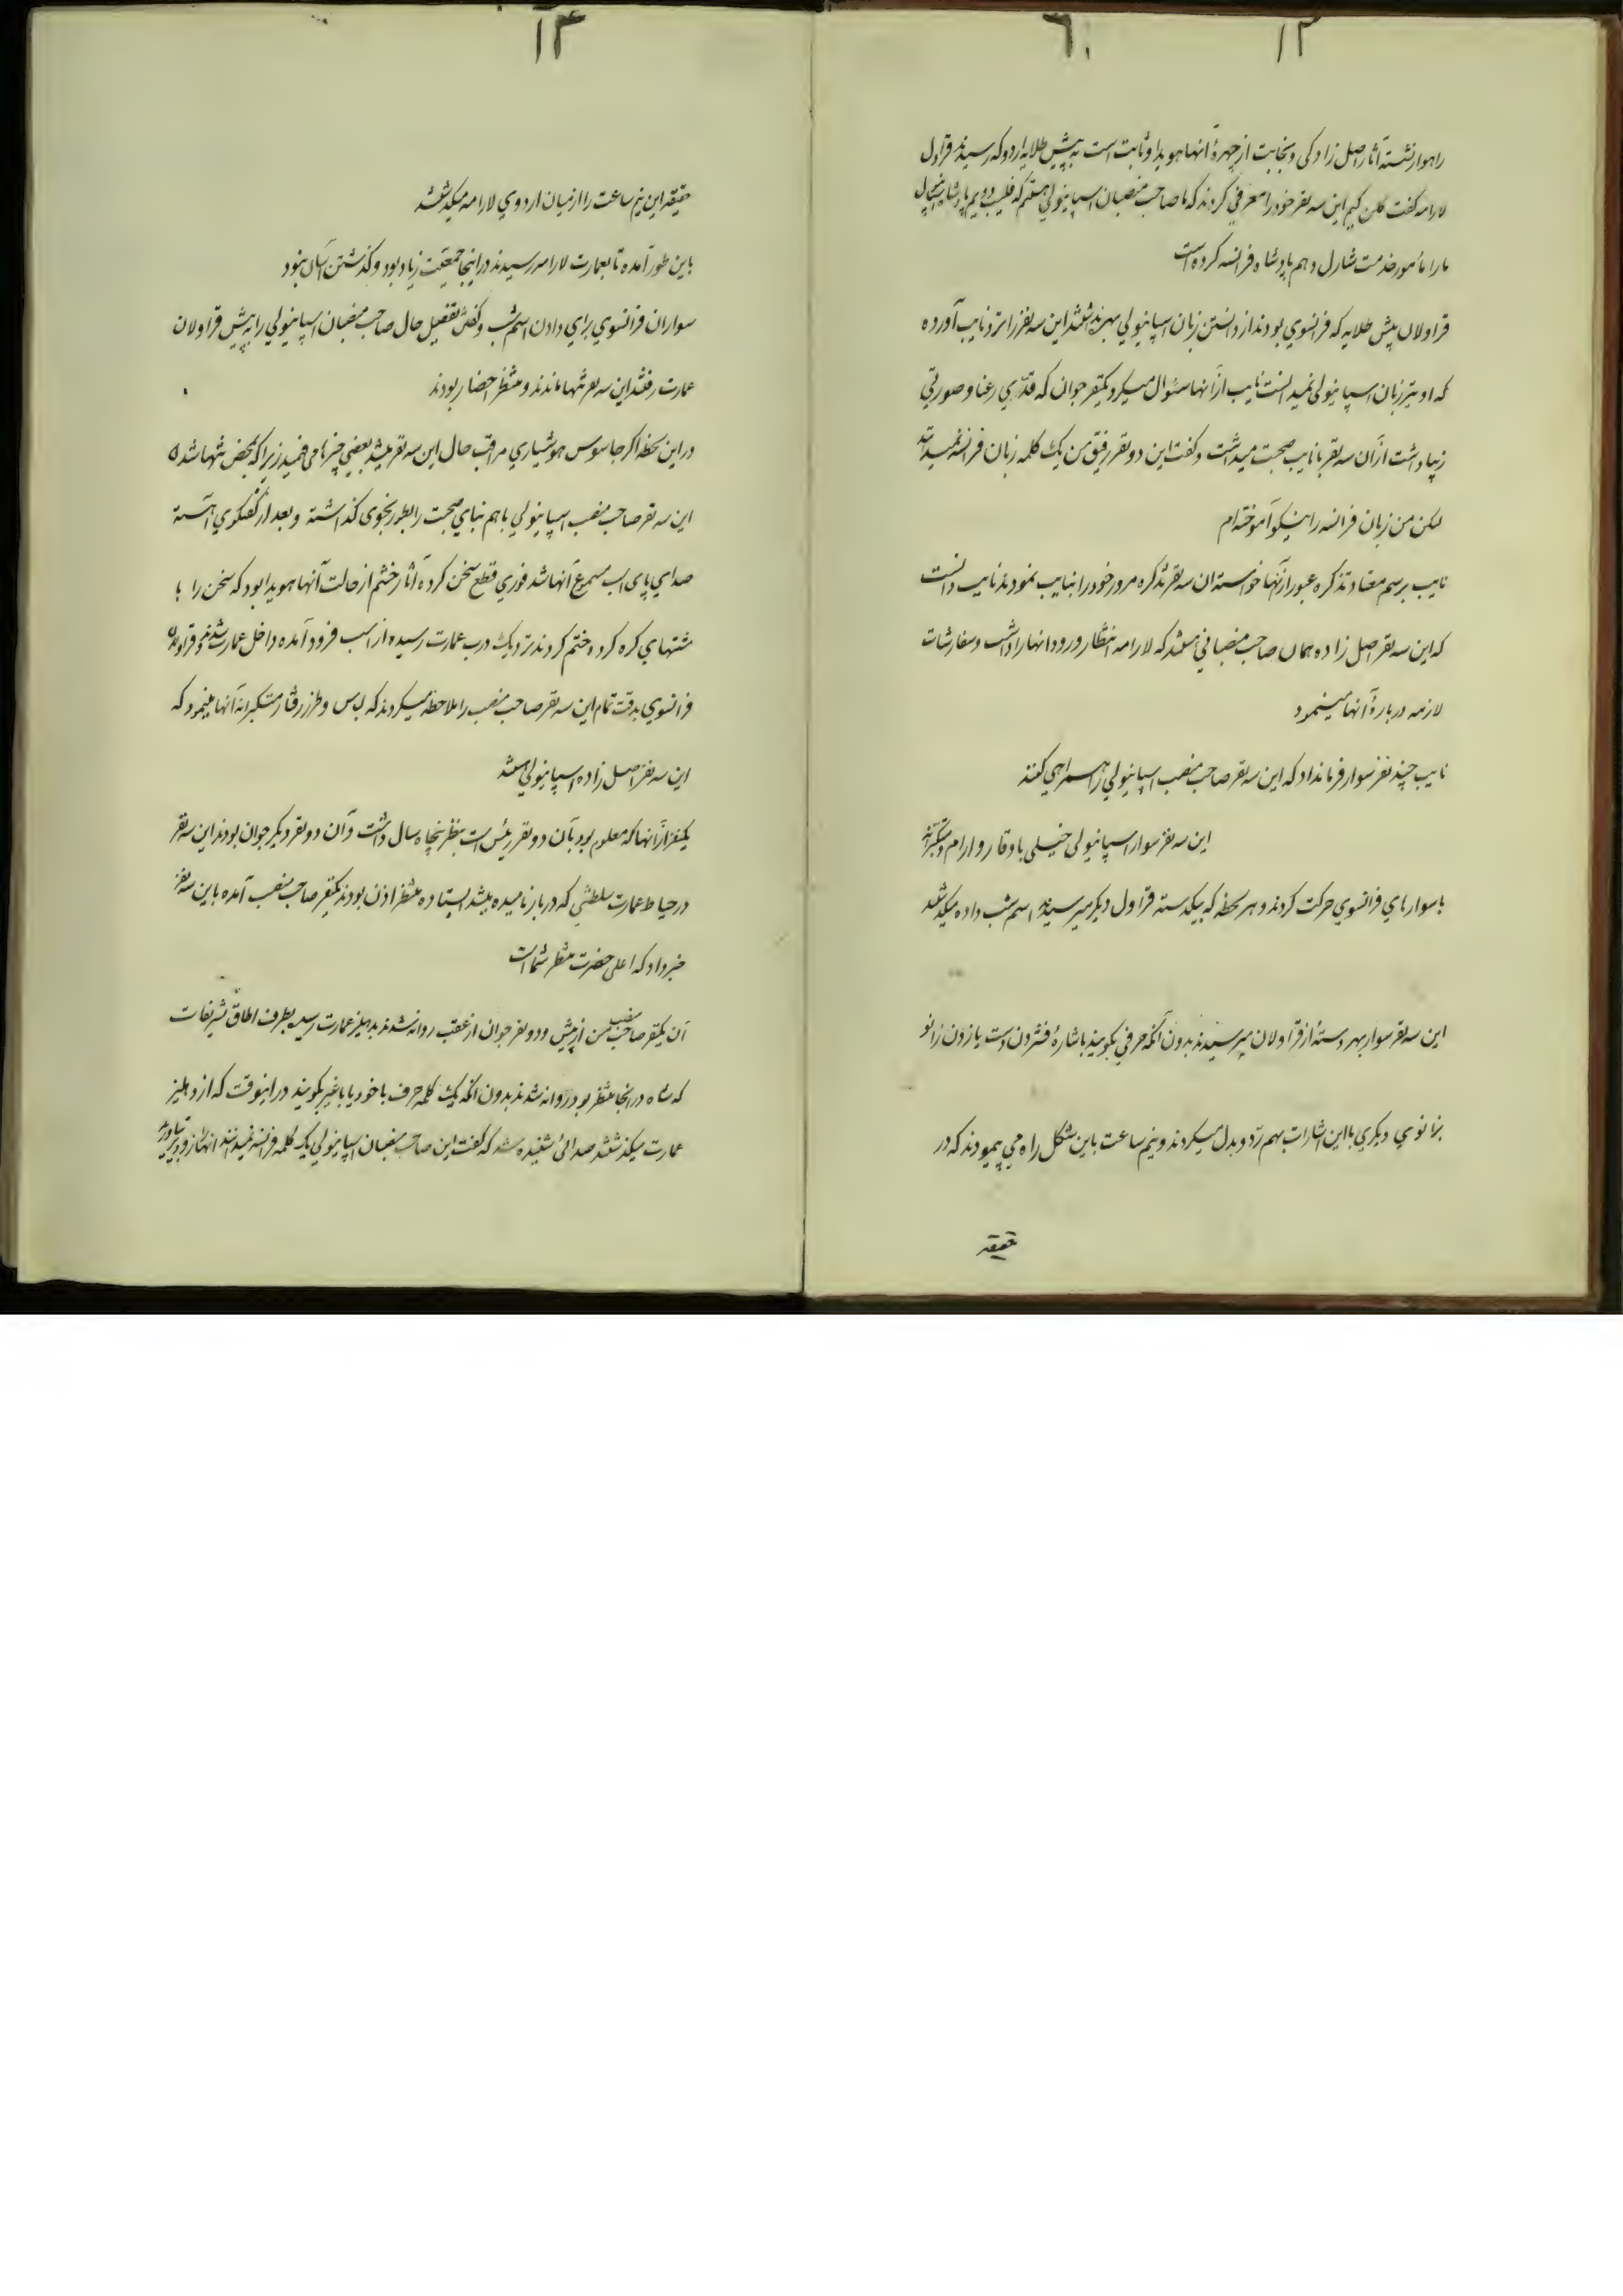 ۱۳
۶۰
راهوار نشسته آثار اصل زادگی و نجابت از چهرهٔ آنها هویدا و ثابت است به پیش طلایه اردو که رسیدند قراول
لارامه گفت این سه نفر خود را معرفی کردند که ما صاحب منصبان اسپانیولی هستیم که فلیپ دویم پادشاه اسپانیول
ما را مأمور خدمت شارل دهم پادشاه فرانسه کرده است
قراولان پیش طلایه که فرانسوی بودند از دانستن زبان اسپانیولی بهره نداشتند این سه نفر را نزد نایب آورده
که او نیز زبان اسپانیولی نمیدانست نایب از آنها سئوال میکرد یکنفر جوان که قدّی رعنا و صورتی
زیبا داشت از آن سه نفر با نایب صحبت میداشت و گفت این دو نفر رفیق من یک کلمه زبان فرانسه نمیدانند
لکن من زبان فرانسه را نیکو آموخته‌ام
نایب برسم معتاد تذکره عبور از آنها خواسته ان سه نفر تذکره مرور خود را بنایب نمودند نایب دانست
که این سه نفر اصل زاده همان صاحب منصبانی هستند که لارامه انتظار ورود انها را داشت و سفارشات
لازمه دربارهٔ آنها مینمود
نایب چند نفر سوار فرمانداد که این سه نفر صاحب منصب اسپانیولی را همراهی کنند
این سه نفر سوار اسپانیولی خیلی با وقار و ارام و متکبرانه
با سوارهای فرانسوی حرکت کردند و هر لحظه که بیکدسته قراول دیگر میرسیدند اسم شب داده میگذشتند
این سه نفر سوار بهر دسته از قراولان میرسیدند بدون آنکه حرفی بگویند باشارهٔ فشردن دست یا زدن زانو
بزانوی دیگری با این اشارات بهم ردّ و بدل میکردند و نیم ساعت باین شکل راه می پیمودند که در
حقیقه
۱۴
حقیقه این نیم ساعت را از میان اردوی لارامه میگذشتند
باین طور آمده تا بعمارت لارامه رسیدند در اینجا جمعیّت زیاد بود و گذشتن آسان نبود
سواران فرانسوی برای دادن اسم شب و گفتن تفصیل حال صاحب منصبان اسپانیولی را به پیش قراولان
عمارت رفتند این سه نفر تنها ماندند و منتظر احضار بودند
در این لحظه اگر جاسوس هوشیاری مراقب حال این سه نفر میشد بعضی چیزها می‌فهمید زیرا که بمحض تنها شدن
این سه نفر صاحب منصب اسپانیولی با هم بنای صحبت را بطور نجوی گذاشته و بعد از گفتگوی آهسته
صدای پای اسب مسموع آنها شد فوری قطع سخن کرده آثار خشم از حالت آنها هویدا بود که سخن را با
مشتهای گره کرده ختم کردند نزدیک درب عمارت رسیده از اسب فرود آمده داخل عمارت شدند و قراولان
فرانسوی بدقت تمام این سه نفر صاحب منصب را ملاحظه میکردند که لباس و طرز رفتار متکبرانه آنها مینمود که
این سه نفر اصل زاده اسپانیولی هستند
یکنفر از آنها که معلوم بود بآن دو نفر رئیس است بنظر پنجاه سال داشت و آن دو نفر دیگر جوان بودند این سه نفر
در حیاط عمارت سلطنتی که دربار نامیده میشد ایستاده منتظر اذن بودند یکنفر صاحب منصب آمده باین سه نفر
خبر داد که اعلی حضرت منتظر شما است
آن یکنفر صاحب منصب مسن از پیش و دو نفر جوان از عقب روانه شدند بدهلیز عمارت رسیده بطرف اطاق تشریفات
که شاه در انجا منتظر بود روانه شدند بدون انکه یک کلمه حرف با خود یا با غیر بگویند در اینوقت که از دهلیز
عمارت میگذشتند صدائی شنیده شد که گفت این صاحب منصبان اسپانیولی یک کلمه فرانسه نمیدانند انها را زودتر بیاورید